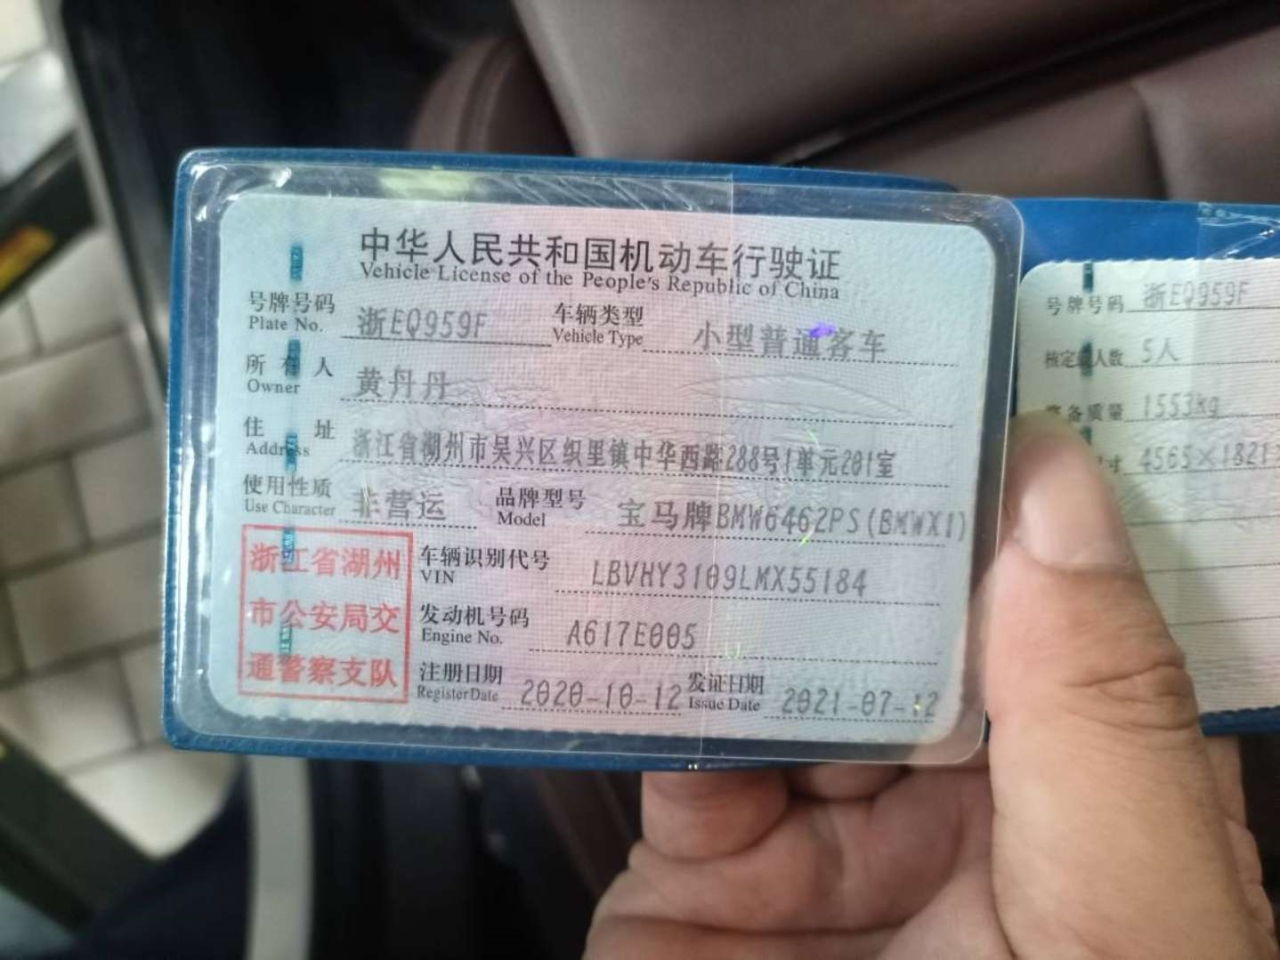 中华人民共和国机动车行驶证
Vehicle License of the People's Republic of China
号牌号码 浙EQ959F 车辆类型 小型普通客车
Plate No. Vehicle Type
所有人 黄丹丹
Owner
住址 浙江省湖州市吴兴区织里镇中华西路288号1单元201室
Address
使用性质 非营运 品牌型号 宝马牌BMW6462PS(BMWX1)
Use Character Model
浙江省湖州
市公安局交
通警察支队
车辆识别代号 LBVHY3109LMX55184
VIN
发动机号码 A617E005
Engine No.
注册日期 2020-10-12 发证日期 2021-07-12
Register Date Issue Date
号牌号码 浙EQ959F
核定载人数 5人
整备质量 1553kg
寸 4565×1821